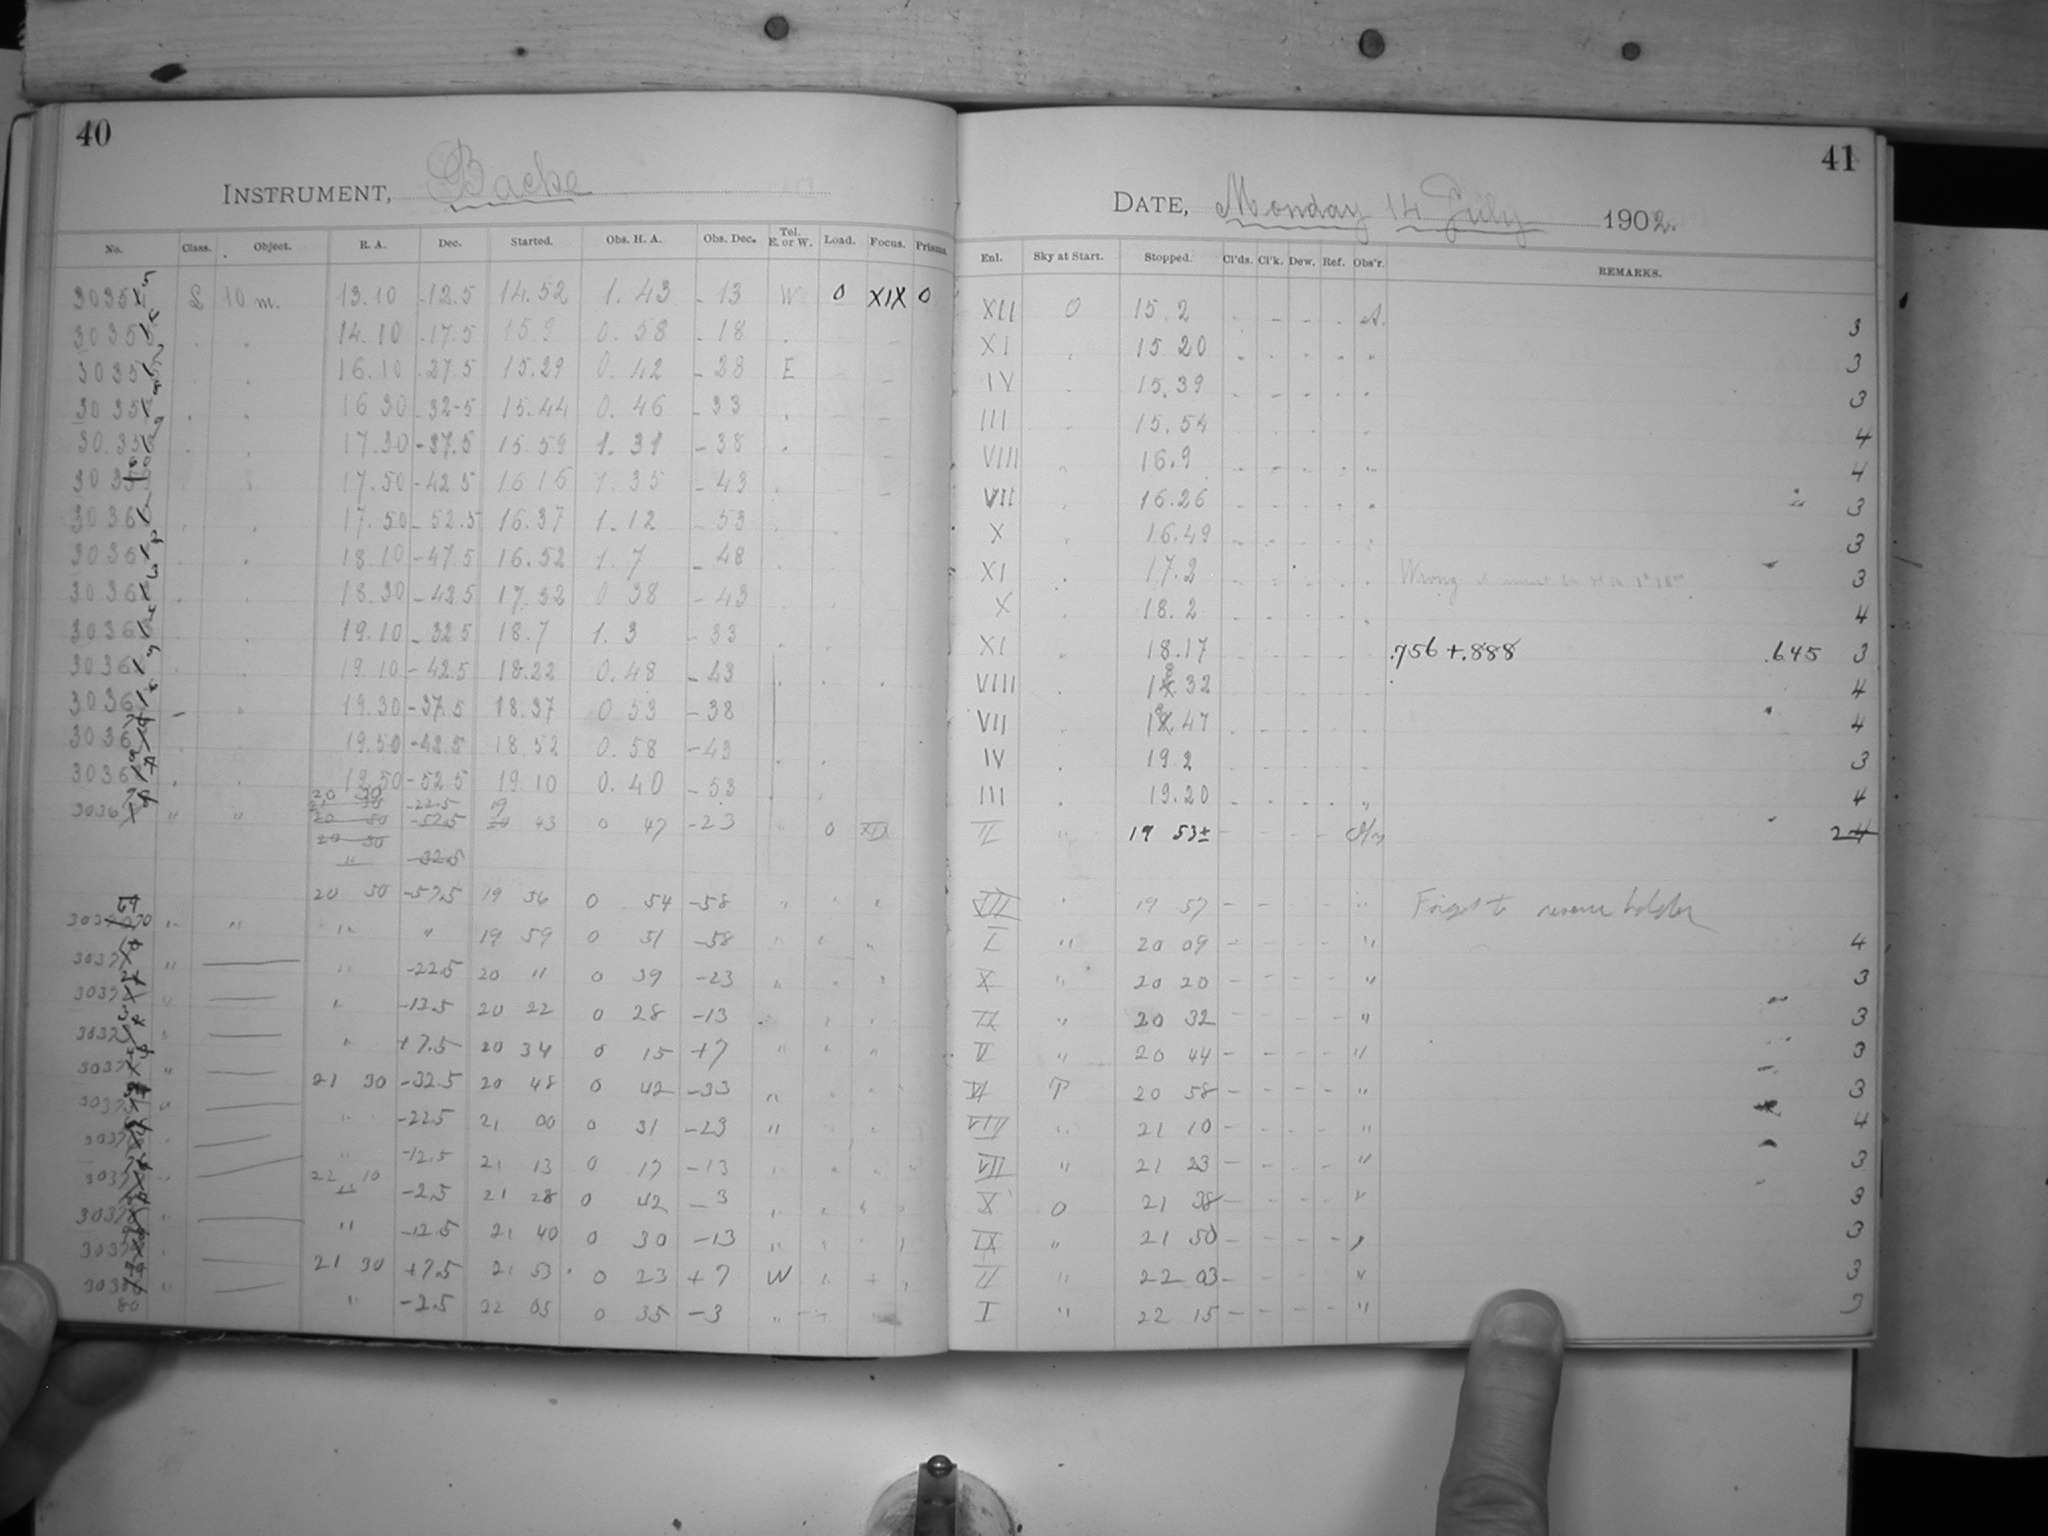 40
INSTRUMENT, Bache
No. Class. Object. R. A. Dec. Started. Obs. H. A. Obs. Dec. Tel. E. or W. Load. Focus. Prisms.
S 10 m. 13.10 -12.5 14.52 1. 43 -13 W 0 XIX 0
14.10 -17.5 15 9 0. 58 -18
16.10 -27.5 15.29 0. 42 -28 E
16 30 -32.5 15.44 0. 46 -33
17.30 -37.5 15 59 1. 31 -38
17.50 -42.5 16 16 1. 35 -43
17.50 -52.5 16.37 1. 12 -53
18.10 -47.5 16.52 1. 7 -48
18.30 -42.5 17.52 0 38 -43
19.10 -32.5 18.7 1. 3 -33
19.10 -42.5 18.22 0. 48 -43
19.30 -37.5 18.37 0 53 -38
19.50 -42.5 18.52 0. 58 -43
19.50 -52.5 19.10 0. 40 -53
20 30 -22.5 19 43 0 47 -23 " 0 XIX
20 50 -52.5
20 30
" -32.5
20 50 -57.5 19 56 0 54 -58 "
" " " " 19 59 0 51 -58 " " "
" -22.5 20 11 0 39 -23
" -12.5 20 22 0 28 -13
" +7.5 20 34 0 15 +7
21 30 -32.5 20 48 0 42 -33
" -22.5 21 00 0 31 -23 "
" -12.5 21 13 0 17 -13
22 10 -2.5 21 28 0 42 -3
" -12.5 21 40 0 30 -13
21 30 +7.5 21 53 0 23 +7 W
80 " -2.5 22 05 0 35 -3 "
41
DATE, Monday 14 July 1902.
Enl. Sky at Start. Stopped. Cl'ds. Cl'k. Dew. Ref. Obs'r. REMARKS.
XII 0 15. 2 - - - - A. 3
XI 15 20 3
IV 15.39 3
III 15.54 4
VIII 16.9 4
VII 16.26 3
X 16.49 3
XI 17.2 Wrong it must be H A 1h 18m 3
X 18.2 4
XI 18.17 .756 +.888 .645 3
VIII 18.32 4
VII 18.47 4
IV 19 2 3
III 19.20 4
II " 19 53± - - - - 2 4
VII " 19 57 - - - - " Forgot to reverse holder
I " 20 09 - - - - " 4
X " 20 20 - - - - " 3
IX " 20 32 - - - - " 3
V " 20 44 - - - - " 3
VI P 20 58 - - - - " 3
VIII " 21 10 - - - - " 4
VII " 21 23 - - - - " 3
X 0 21 38 - - - - " 3
IX " 21 50 - - - - " 3
II " 22 03 - - - - " 3
I " 22 15 - - - - " 3